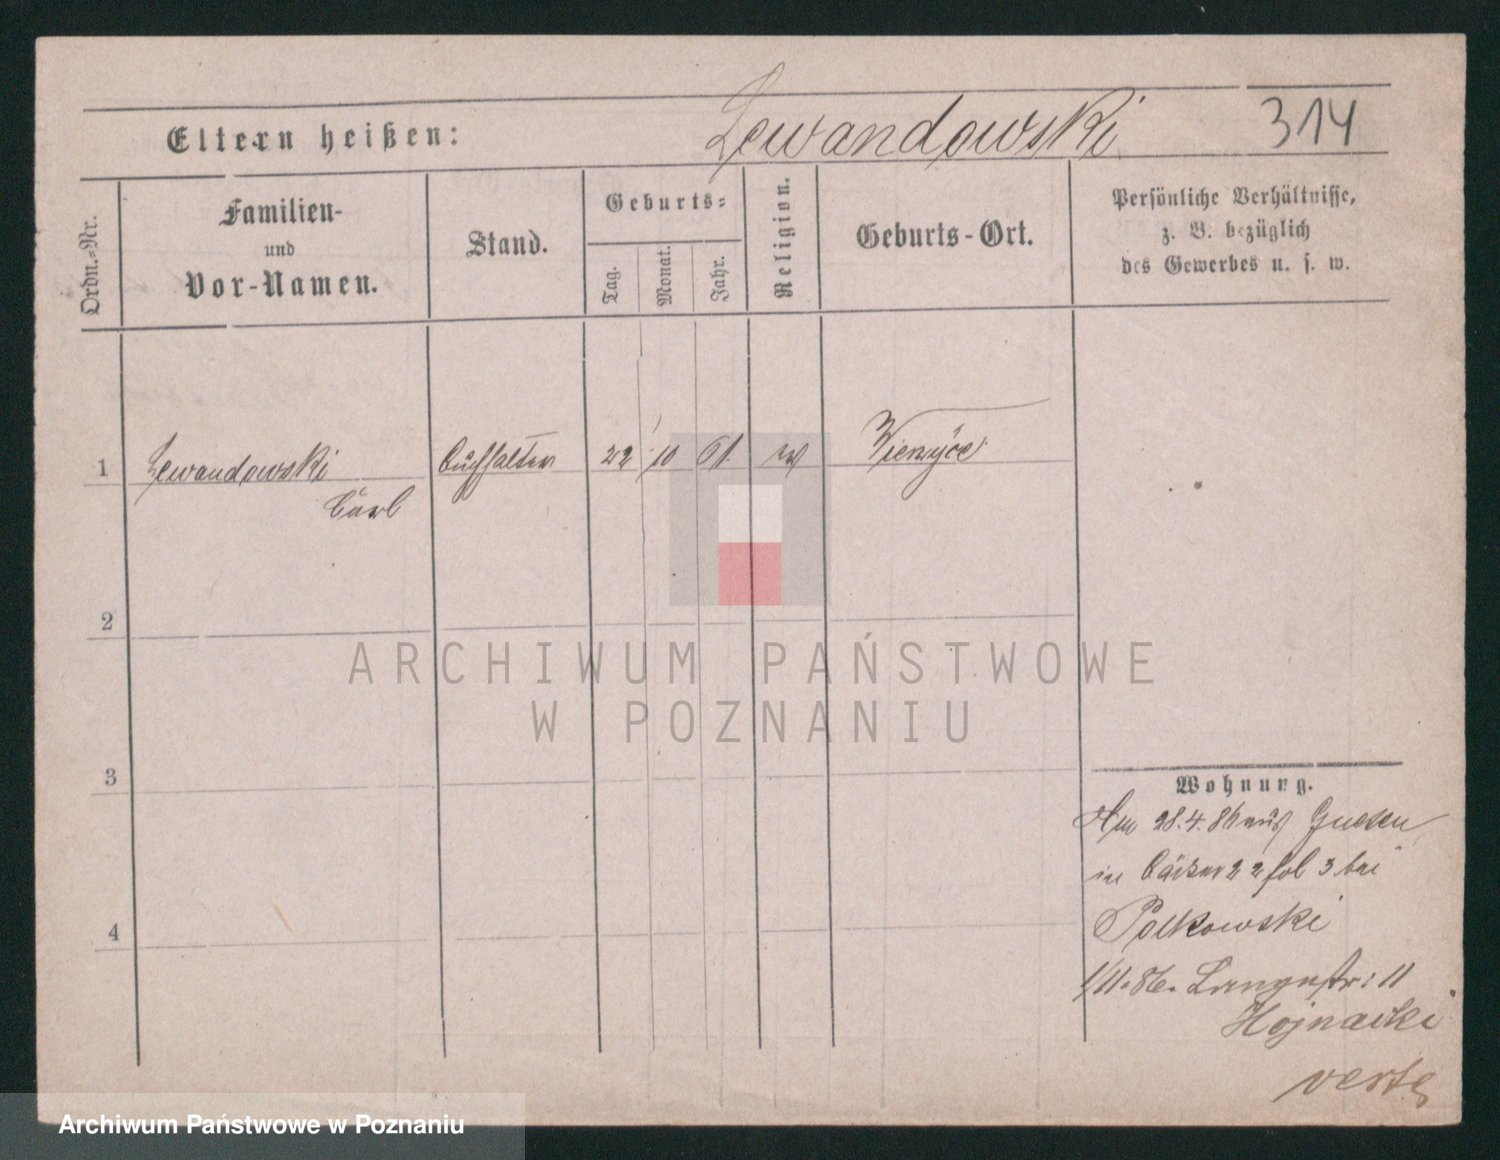 Eltern heißen: Lewandowski 314
Ordn.-Nr.
Familien-
und
Vor-Namen.
Stand.
Geburts-
Tag.
Monat.
Jahr.
Religion.
Geburts-Ort.
Persönliche Verhältnisse,
z. B. bezüglich
des Gewerbes u. s. w.
1 Lewandowski Buchhalter 22 10 61.
Carl
2
ARCHIWUM PAŃSTWOWE
W POZNANIU
3
Wohnung.
Am 28.4.86 aus Gnesen
in 22 fol 3 bei
Polkowski
1/11.86. Langestr: 11
Hojnacki
verte
4
Archiwum Państwowe w Poznaniu